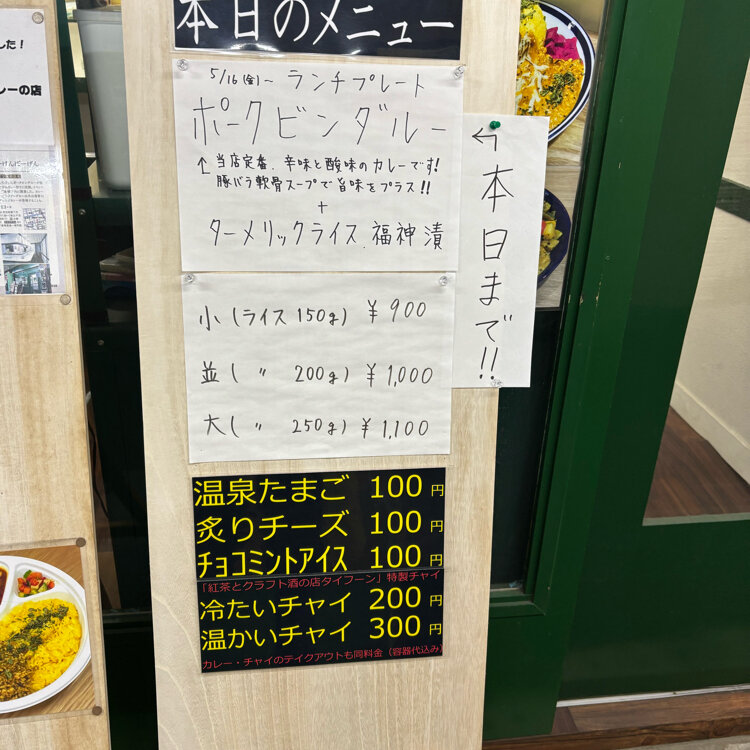 本日のメニュー
5/16(金)～ ランチプレート
ポークビンダルー
↑ 当店定番、辛味と酸味のカレーです!
豚バラ軟骨スープで旨味をプラス!!
+
ターメリックライス、福神漬
←本日まで!!
小(ライス 150g) ¥900
並( 〃 200g) ¥1,000
大( 〃 250g) ¥1,100
温泉たまご 100円
炙りチーズ 100円
チョコミントアイス 100円
「紅茶とクラフト酒の店タイフーン」特製チャイ
冷たいチャイ 200円
温かいチャイ 300円
カレー・チャイのテイクアウトも同料金（容器代込み）
した！
レーの店